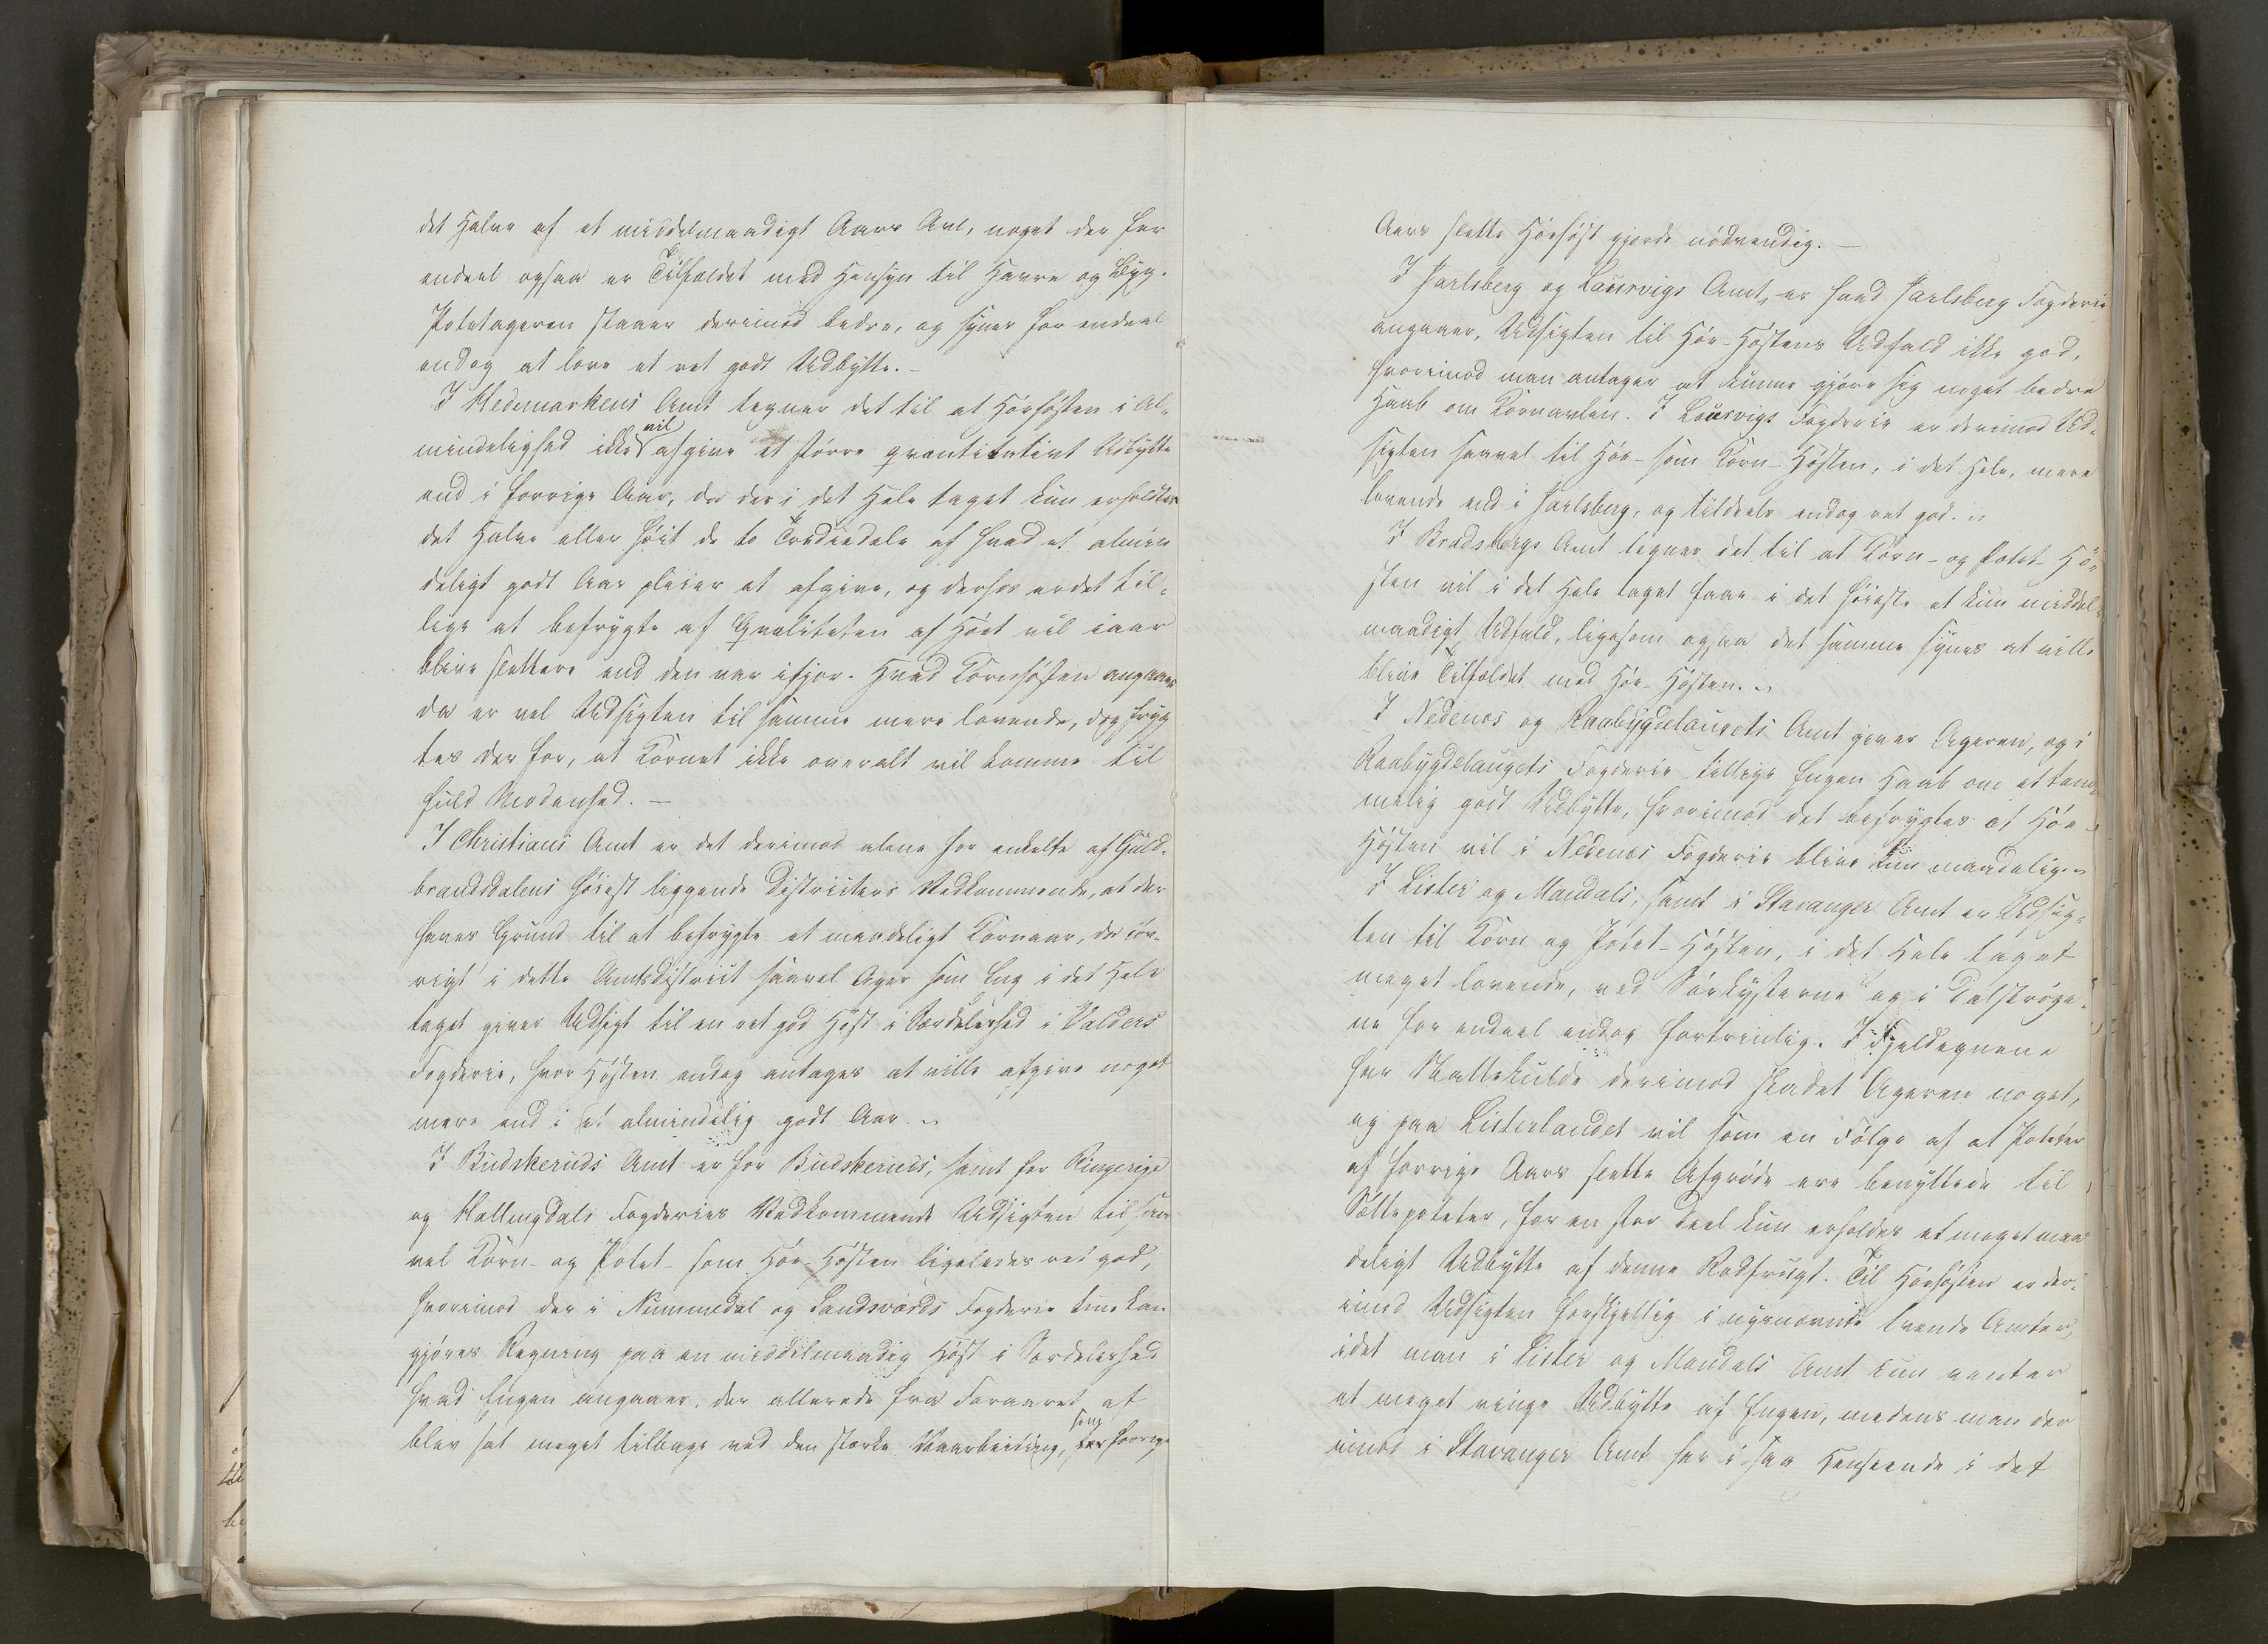 det Halve af et middelmaadigt Aars Avl, noget der for
endeel ogsaa er Tilfældet med Hensyn til Havre og Byg.
Potetageren staaer derimod bedre, og synes for endeel
endog at love et ret godt Udbytte. –
I Hedemarkens Amt tegner det til at Höehösten i Al-
mindelighed ikke vil afgive et större qvantitativt Udbytte
end i forrige Aar, da der i det Hele taget kun erholdtes
det Halve eller höit de to Trediedele af hvad et almin
deligt godt Aar pleier at afgive, og derhos er det til-
lige at befrygte at Qvaliteten af Höet vil iaar
blive slettere end den var ifjor. Hvad Kornhösten angaaer
da er vel Udsigten til samme mere lovende, dog fryg
tes der for, at Kornet ikke overalt vil komme til
fuld Modenhed. –
I Christians Amt er det derimod alene for enkelte af Guld-
brandsdalens höiest liggende Districters Vedkommende, at der
haves Grund til at befrygte et maadeligt Kornaar, da iöv-
rigt i dette Amtsdistrict saavel Ager som Eng i det Hele
taget giver Udsigt til en ret god Höst i Særdeleshed i Valders
Fogderie, hvor Hösten endog antages at ville afgive noget
mere end i et almindelig godt Aar. –
I Budskeruds Amt er for Budskeruds, samt for Ringerige
og Hallingdals Fogderies Vedkommende Udsigten til saa
vel Korn- og Potet- som Höe-Hösten ligeledes ret god,
hvorimod der i Nummedal og Sandsværds Fogderie kun kan
gjöres Regning paa en middelmaadig Höst i Særdeleshed
hvad Engen angaaer, der allerede fra Foraaret af
blev sat meget tilbage ved den stærke Vaarbeiting, som forrige
Aars slette Höehöst gjorde nödvendig. –
I Jarlsberg og Laurvigs Amt, er hvad Jarlsberg Fogderie
angaaer, Udsigten til Höe-Höstens Udfald ikke god,
hvorimod man antager at kunne gjöre sig noget bedre
Haab om Kornavlen. I Laurvigs Fogderie er derimod Ud-
sigten saavel til Höe- som Korn-Hösten, i det Hele, mere
lovende end i Jarlsberg, og tildeels endog ret god. –
I Bradsbergs Amt tegner det til at Korn- og Potet-Hö-
sten vil i det Hele taget faae i det höieste et kun middel-
maadigt Udfald, ligesom ogsaa det samme synes at ville
blive Tilfældet med Höe-Hösten. –
I Nedenes og Raabygdelaugets Amt giver Ageren, og i
Raabygdelaugets Fogderie tillige Engen Haab om et tem-
melig godt Udbytte, hvorimod det befrygtes at Höe-
Hösten vil i Nedenes Fogderie blive kun maadelig. –
I Lister og Mandals, samt i Stavanger Amt er Udsig-
ten til Korn og Potet-Hösten, i det Hele taget
meget lovende, ved Söekysterne og i Dalströge-
ne for endeel endog fortrinlig. I Fjeldegnene
har Nattekulde derimod skadet Ageren noget,
og paa Listerlandet vil som en Fölge af at Poteter
af forrige Aars slette Afgröde ere benyttede til
Sættepoteter, for en stor Deel kun erholdes et meget maa
deligt Udbytte af denne Rodfrugt. Til Höehösten er der-
imod Udsigten forskjellig i nysnævnte tvende Amter,
idet man i Lister og Mandals Amt kun venter
et meget ringe Udbytte af Engen, medens man der
imod i Stavanger Amt har i saa Henseende i det